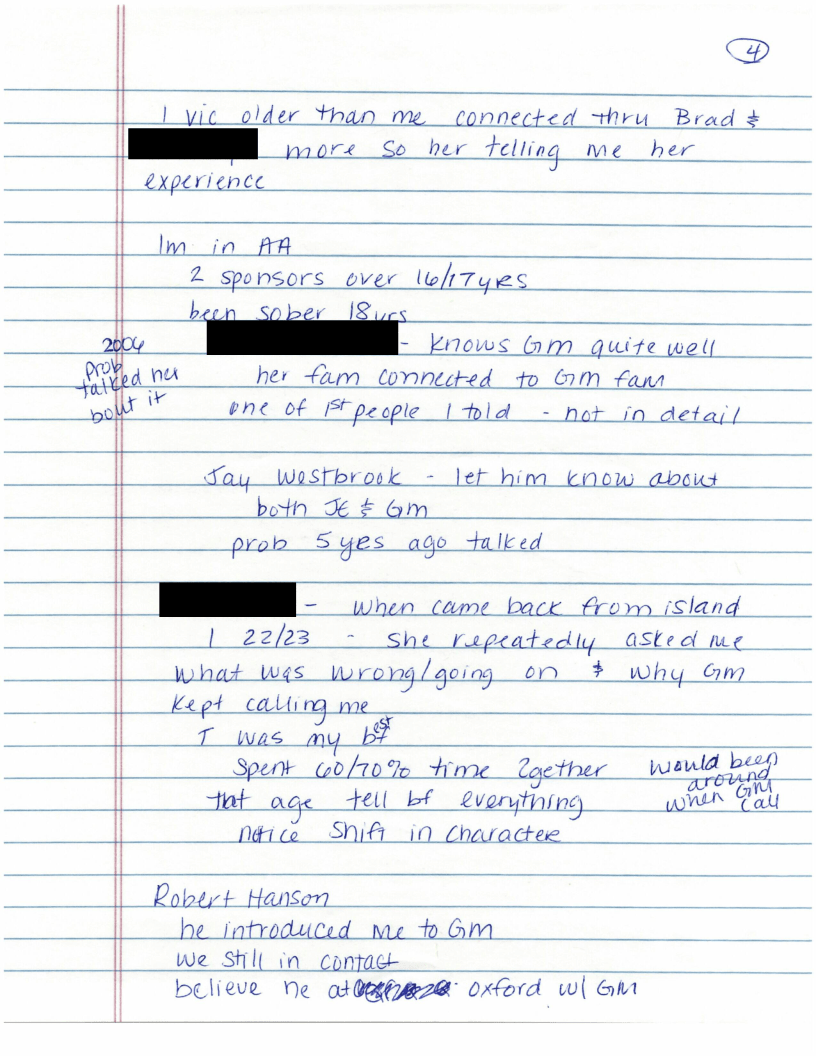 4
1 vic older than me connected thru Brad &
more so her telling me her
experience
Im in AA
2 sponsors over 16/17yrs
been sober 18yrs
- knows GM quite well
2004
prob
talked her
bout it
her fam connected to GM fam
one of 1st people I told - not in detail
Jay Westbrook - let him know about
both JE & GM
prob 5 yes ago talked
- when came back from island
1 22/23 - she repeatedly asked me
what was wrong/going on & why GM
kept calling me
T was my best
Spent 60/70% time 2gether
would been
around
when GM
call
that age tell bf everything
notice shift in character
Robert Hanson
he introduced me to GM
we still in contact
believe he at Oxford w/ GM